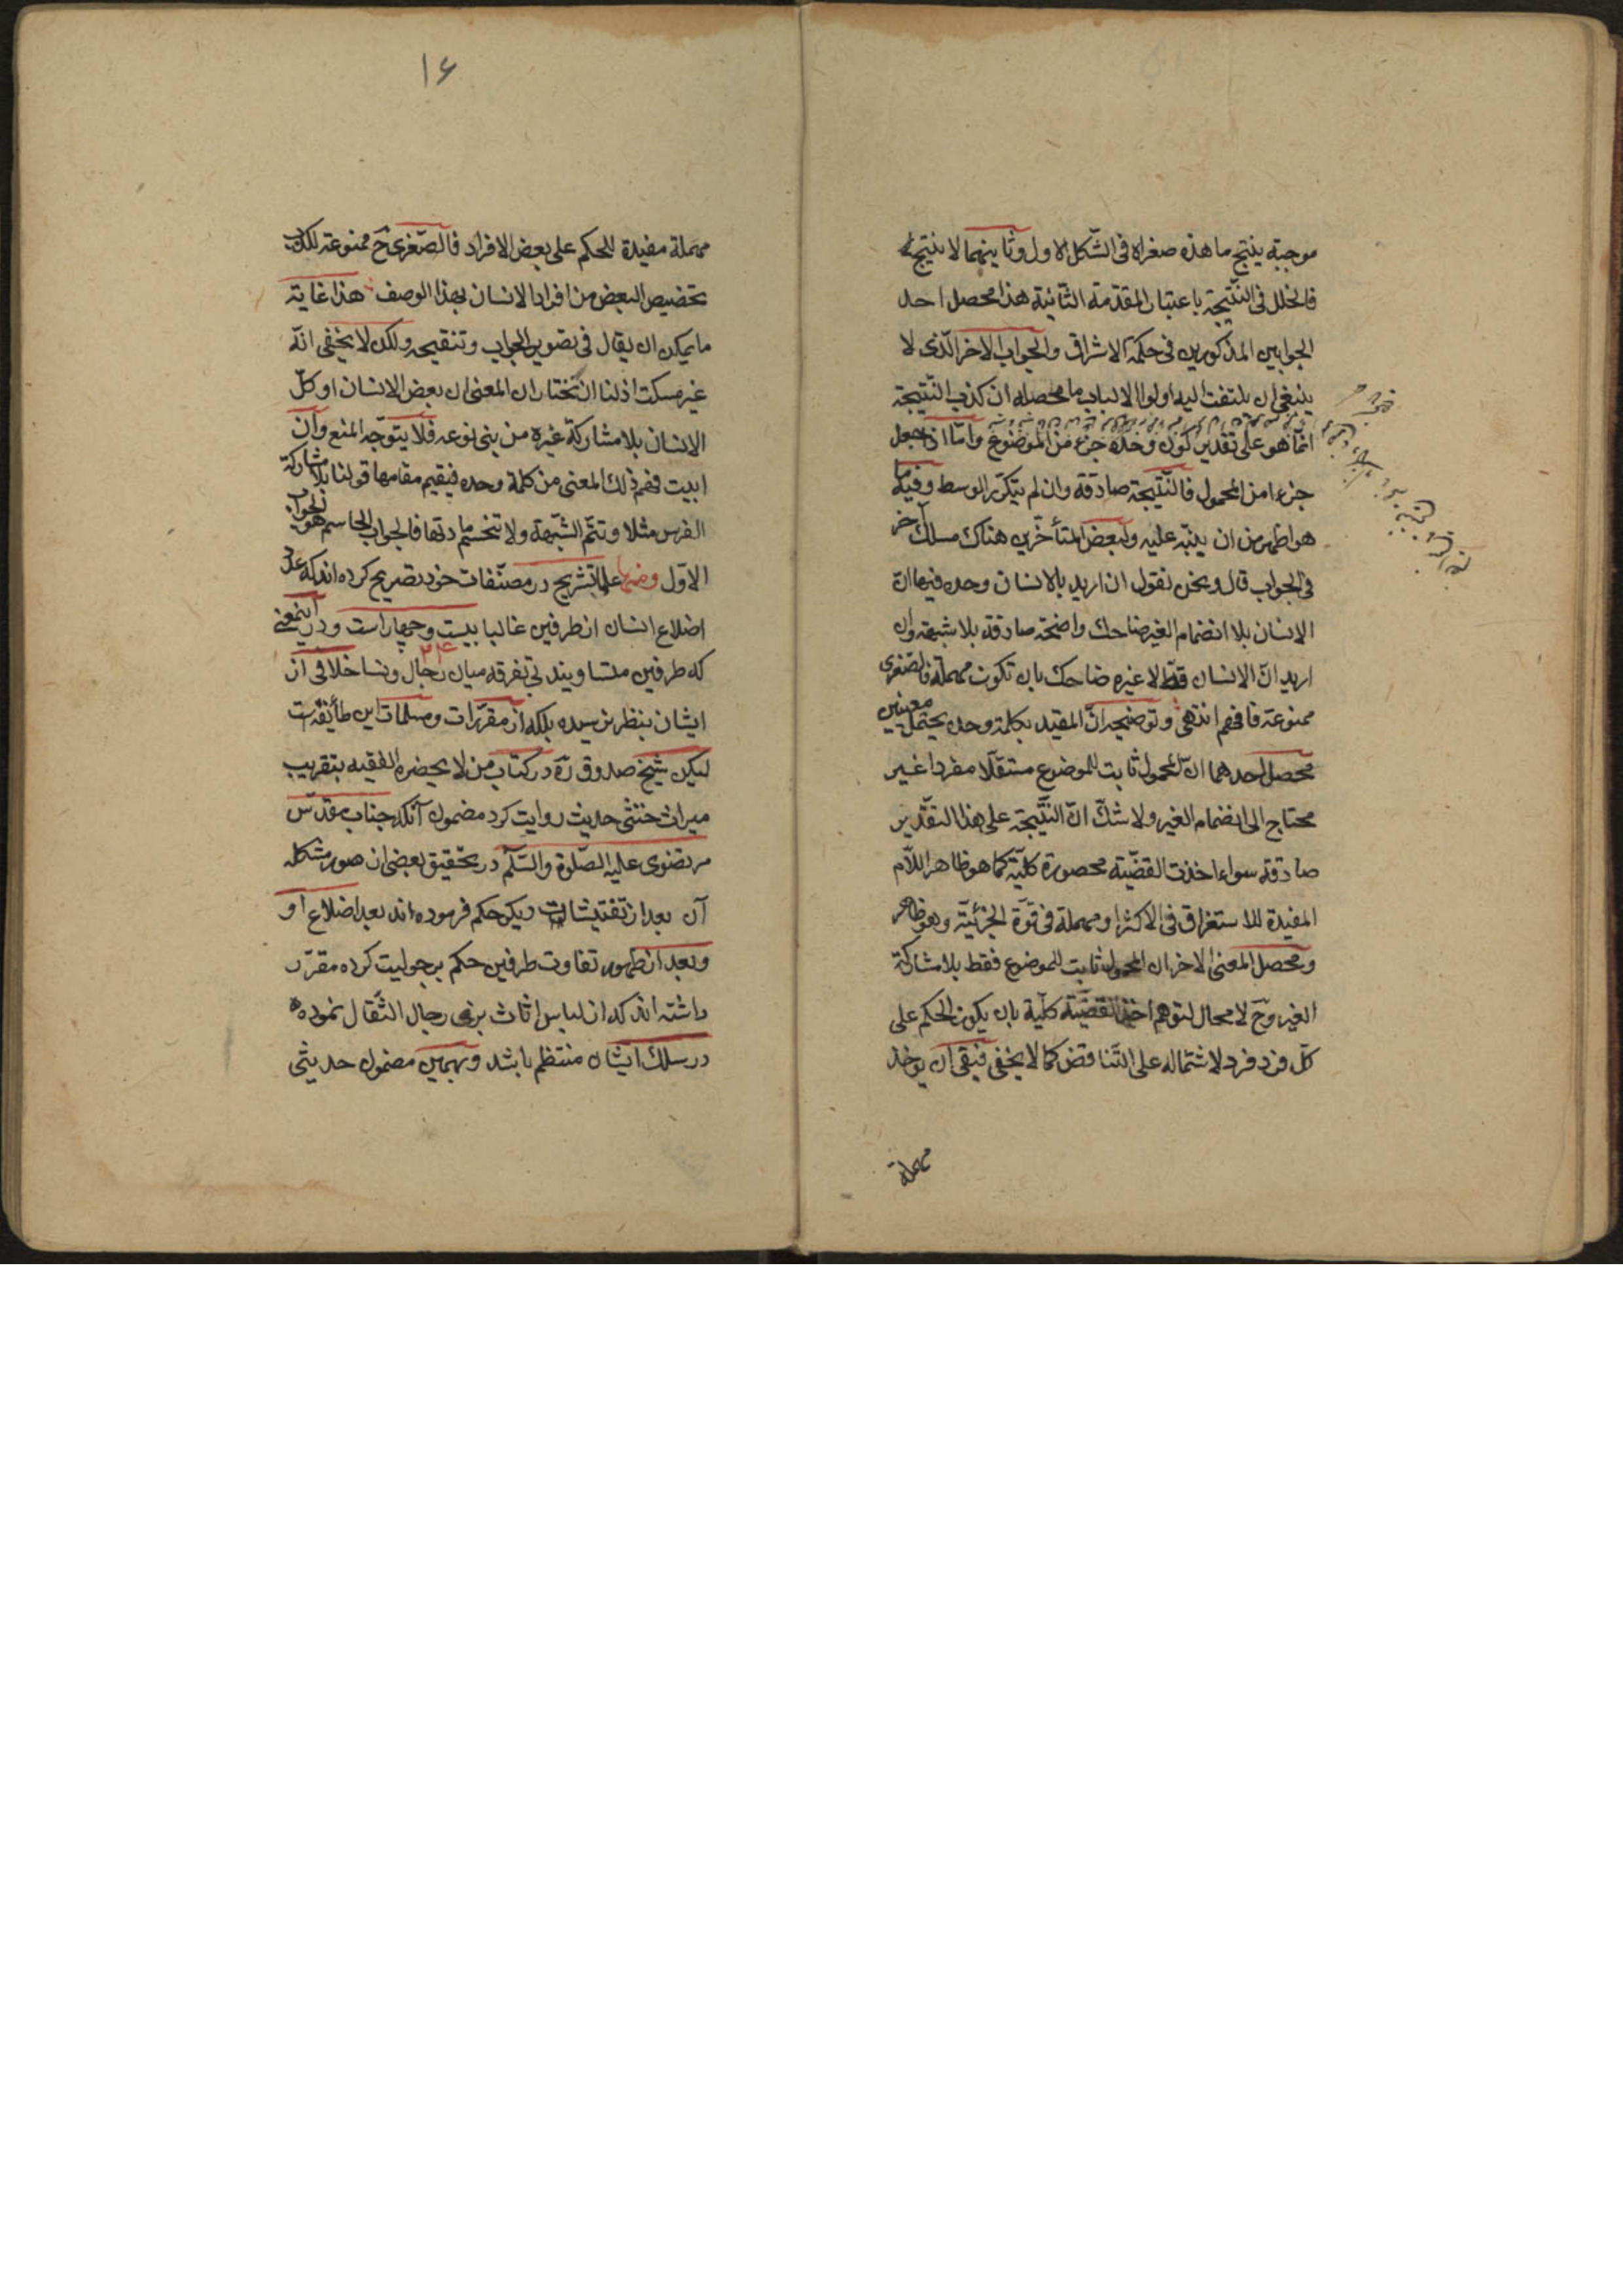 موجبة ينتج ما هذه صغراه فى الشّكل الاول وثانيهما لا ينتج
فالخلل فى النّتيجة باعتبار المقدّمة الثّانية هذا محصل احد
الجوابين المذكورين فى حكمة الاشراق والجواب الاخر الّذى لا
ينبغى ان يلتفت اليه اولوا الالباب ما محصله ان كذب النّتيجة
انّما هو على تقدير كون وحده جزء من الموضوع وامّا اذا جعل
جزءا من المحمول فالنّتيجة صادقة وان لم يتكرّر الوسط وفيه ما
هو اظهر من ان ينبّه عليه ولبعض المتأخّرين هناك مسلك آخر
فى الجواب قال ونحن نقول ان اريد بالانسان وحده فيها انّ
الانسان بلا انضمام الغير ضاحك واضحة صادقة بلا شبهة وان
اريد انّ الانسان قطّ لا غيره ضاحك بان تكون مهملة فالصّغرى
ممنوعة فافهم انتهى وتوضيحه انّ المقيد بكلمة وحده يحتمل معنيين
محصل احدهما انّ المحمول ثابت للموضوع مستقلّا مفردا غير
محتاج الى انضمام الغير ولا شكّ انّ النّتيجة على هذا التقدير
صادقة سواء اخذت القضّية محصورة كليّة كما هو ظاهر اللّام
المفيدة للاستغراق فى الاكثر او مهملة فى قوّة الجزئيّة وهو ظاهر
ومحصل المعنى الاخر ان المحمول ثابت للموضوع فقط بلا مشاركة
الغير وح لا مجال لتوهم اخذ القضيّة كليّة بان يكون الحكم على
كلّ فرد فرد لاشتماله على التّناقض كما لا يخفى فبقى ان يوخذ
مهملة
١۶
مهملة مفيدة للحكم على بعض الافراد فالصّغرى ح ممنوعة لكذب
تخصيص البعض من افراد الانسان بهذا الوصف هذا غاية
ما يمكن ان يقال فى تصوير الجواب وتنقيحه ولكن لا يخفى انّه
غير مسكت اذ لنا ان نختار ان المعنى ان بعض الانسان او كلّ
الانسان بلا مشاركة غيره من بنى نوعه فلا يتوجّه المنع وان
ابيت فهم ذلك المعنى من كلمة وحده فيقيم مقامها قولنا بلا مشاركة
الفرس مثلا وتتّم الشّبهة ولا تنحسم مادتها فالجواب الحاسم هو الجواب
الاوّل ومنها علماء تشريح در مصنّفات خود تصريح كرده اند كه عدد
اضلاع انسان از طرفين غالبا بيست وچهار است ودر اينمعنى
٢۴
كه طرفين متساويند بى تفرقه ميان رجال ونسا خلافى از
ايشان بنظر نرسيده بلكه از مقرّرات ومسلمات اين طائفه است
ليكن شيخ صدوق ره در كتاب من لا يحضره الفقيه بتقريب
ميراث خنثى حديث روايت كرد مضمون آنكه جناب مقدّس
مرتضوى عليه الصّلوة والسّلم در تحقيق بعضى از صور مشكله
آن بعد از تفتيشات ديگر حكم فرموده اند بعد اضلاع او
وبعد از ظهور تفاوت طرفين حكم برجوليت كرده مقرّر
داشته اند كه از لباس اناث برى رجال انتقال نموده
در سلك ايشان منتظم باشد وبهمين مضمون حديثى